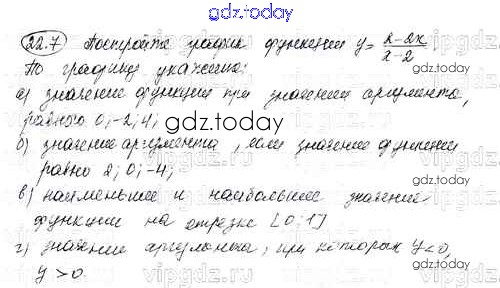 gdz.today
22.7 Постройте график функции y = x-2x / x-2
По графику укажите:
а) значение функции при значении аргумента,
равного 0; -2; 4;
gdz.today
б) значение аргумента, если значение функции
равно 2; 0; -4;
в) наименьшее и наибольшее значение
функции на отрезке [0; 1]
г) значения аргумента, при которых y<0,
y > 0.
gdz.today